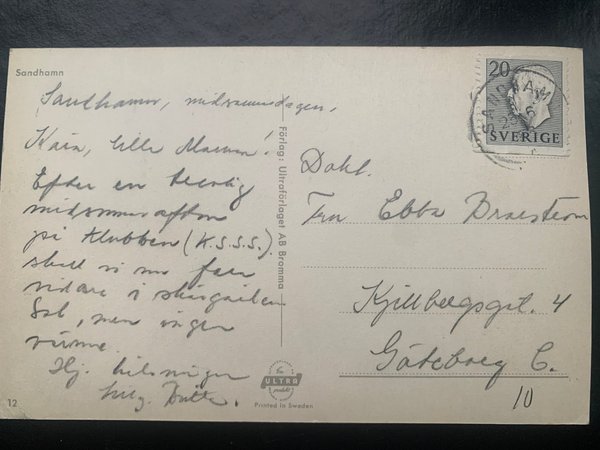 Sandhamn
Sandhamn, midsommardagen.
Kära, lilla Mamma!
Efter en trevlig
midsommarafton
på Klubben (K.S.S.S.)
skall vi nu fara
vidare i skärgården
Sol, men ingen
värme
Hj. hälsningar
12
Förlag: Ultraförlaget AB Bromma
ULTRA
Printed in Sweden
20
SVERIGE
SANDHAMN
Fru Ebba
Kjellbergsgat. 4
Göteborg C.
10